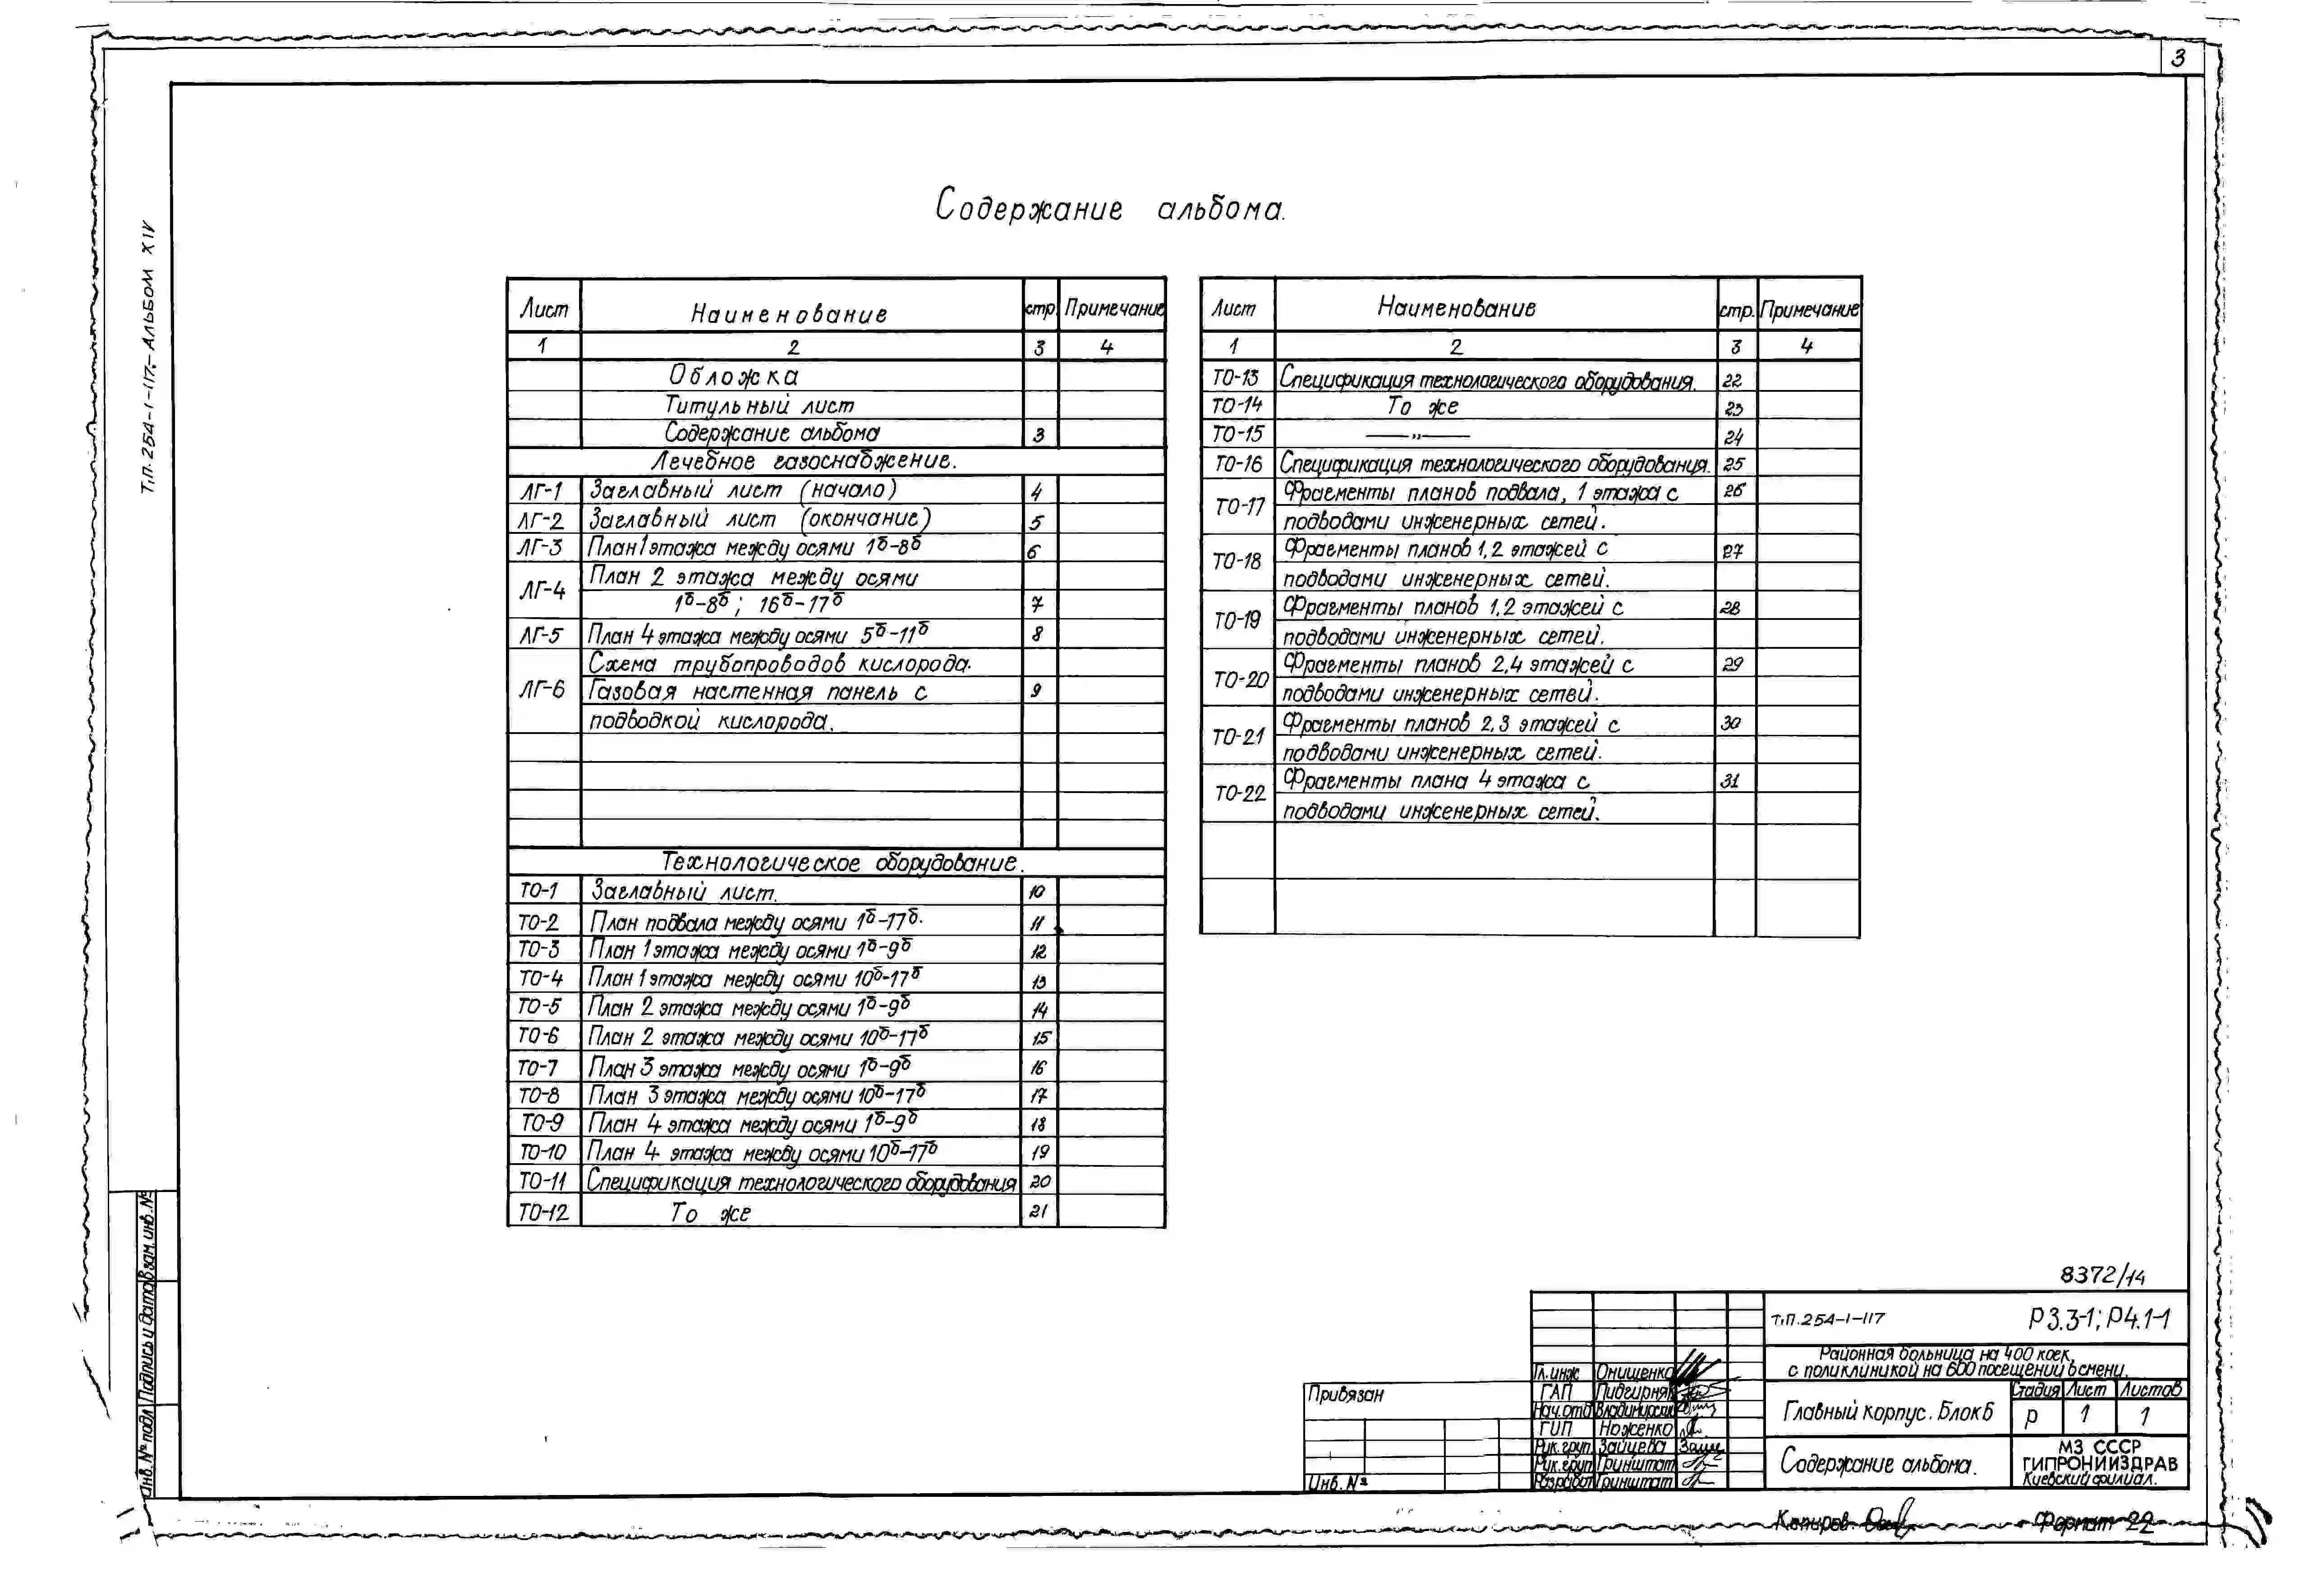 3
Т.П. 254-1-117.-АЛЬБОМ XIV
Содержание альбома.
Лист Наименование стр. Примечание
1 2 3 4
Обложка
Титульный лист
Содержание альбома 3
Лечебное газоснабжение.
ЛГ-1 Заглавный лист (начало) 4
ЛГ-2 Заглавный лист (окончание) 5
ЛГ-3 План 1 этажа между осями 1б-8б 6
ЛГ-4 План 2 этажа между осями
1б-8б; 16б-17б 7
ЛГ-5 План 4 этажа между осями 5б-11б 8
Схема трубопроводов кислорода.
ЛГ-6 Газовая настенная панель с 9
подводкой кислорода.
Технологическое оборудование.
ТО-1 Заглавный лист. 10
ТО-2 План подвала между осями 1б-17б. 11
ТО-3 План 1 этажа между осями 1б-9б 12
ТО-4 План 1 этажа между осями 10б-17б 13
ТО-5 План 2 этажа между осями 1б-9б 14
ТО-6 План 2 этажа между осями 10б-17б 15
ТО-7 План 3 этажа между осями 1б-9б 16
ТО-8 План 3 этажа между осями 10б-17б 17
ТО-9 План 4 этажа между осями 1б-9б 18
ТО-10 План 4 этажа между осями 10б-17б 19
ТО-11 Спецификация технологического оборудования 20
ТО-12 То же 21
Лист Наименование стр. Примечание
1 2 3 4
ТО-13 Спецификация технологического оборудования. 22
ТО-14 То же 23
ТО-15 —"— 24
ТО-16 Спецификация технологического оборудования. 25
ТО-17 Фрагменты планов подвала, 1 этажа с 26
подводами инженерных сетей.
ТО-18 Фрагменты планов 1,2 этажей с 27
подводами инженерных сетей.
ТО-19 Фрагменты планов 1,2 этажей с 28
подводами инженерных сетей.
ТО-20 Фрагменты планов 2,4 этажей с 29
подводами инженерных сетей.
ТО-21 Фрагменты планов 2,3 этажей с 30
подводами инженерных сетей.
ТО-22 Фрагменты плана 4 этажа с 31
подводами инженерных сетей.
Инв. № подл Подпись и дата Взам. инв. №
8372/14
Т.П. 254-1-117 Р3.3-1; Р4.1-1
Районная больница на 400 коек,
с поликлиникой на 600 посещений в смену.
Гл. инж Онищенко
ГАП Пидгирняк
Нач. отд Владимирский
ГИП Ноженко
Рук. груп. Зайцева
Рук. груп Гринштат
Разработ Гринштат
Главный корпус. Блок Б
Стадия Лист Листов
Р 1 1
Содержание альбома.
МЗ СССР
ГИПРОНИИЗДРАВ
Киевский филиал.
Привязан
Инв. №
Копиров. Формат 22